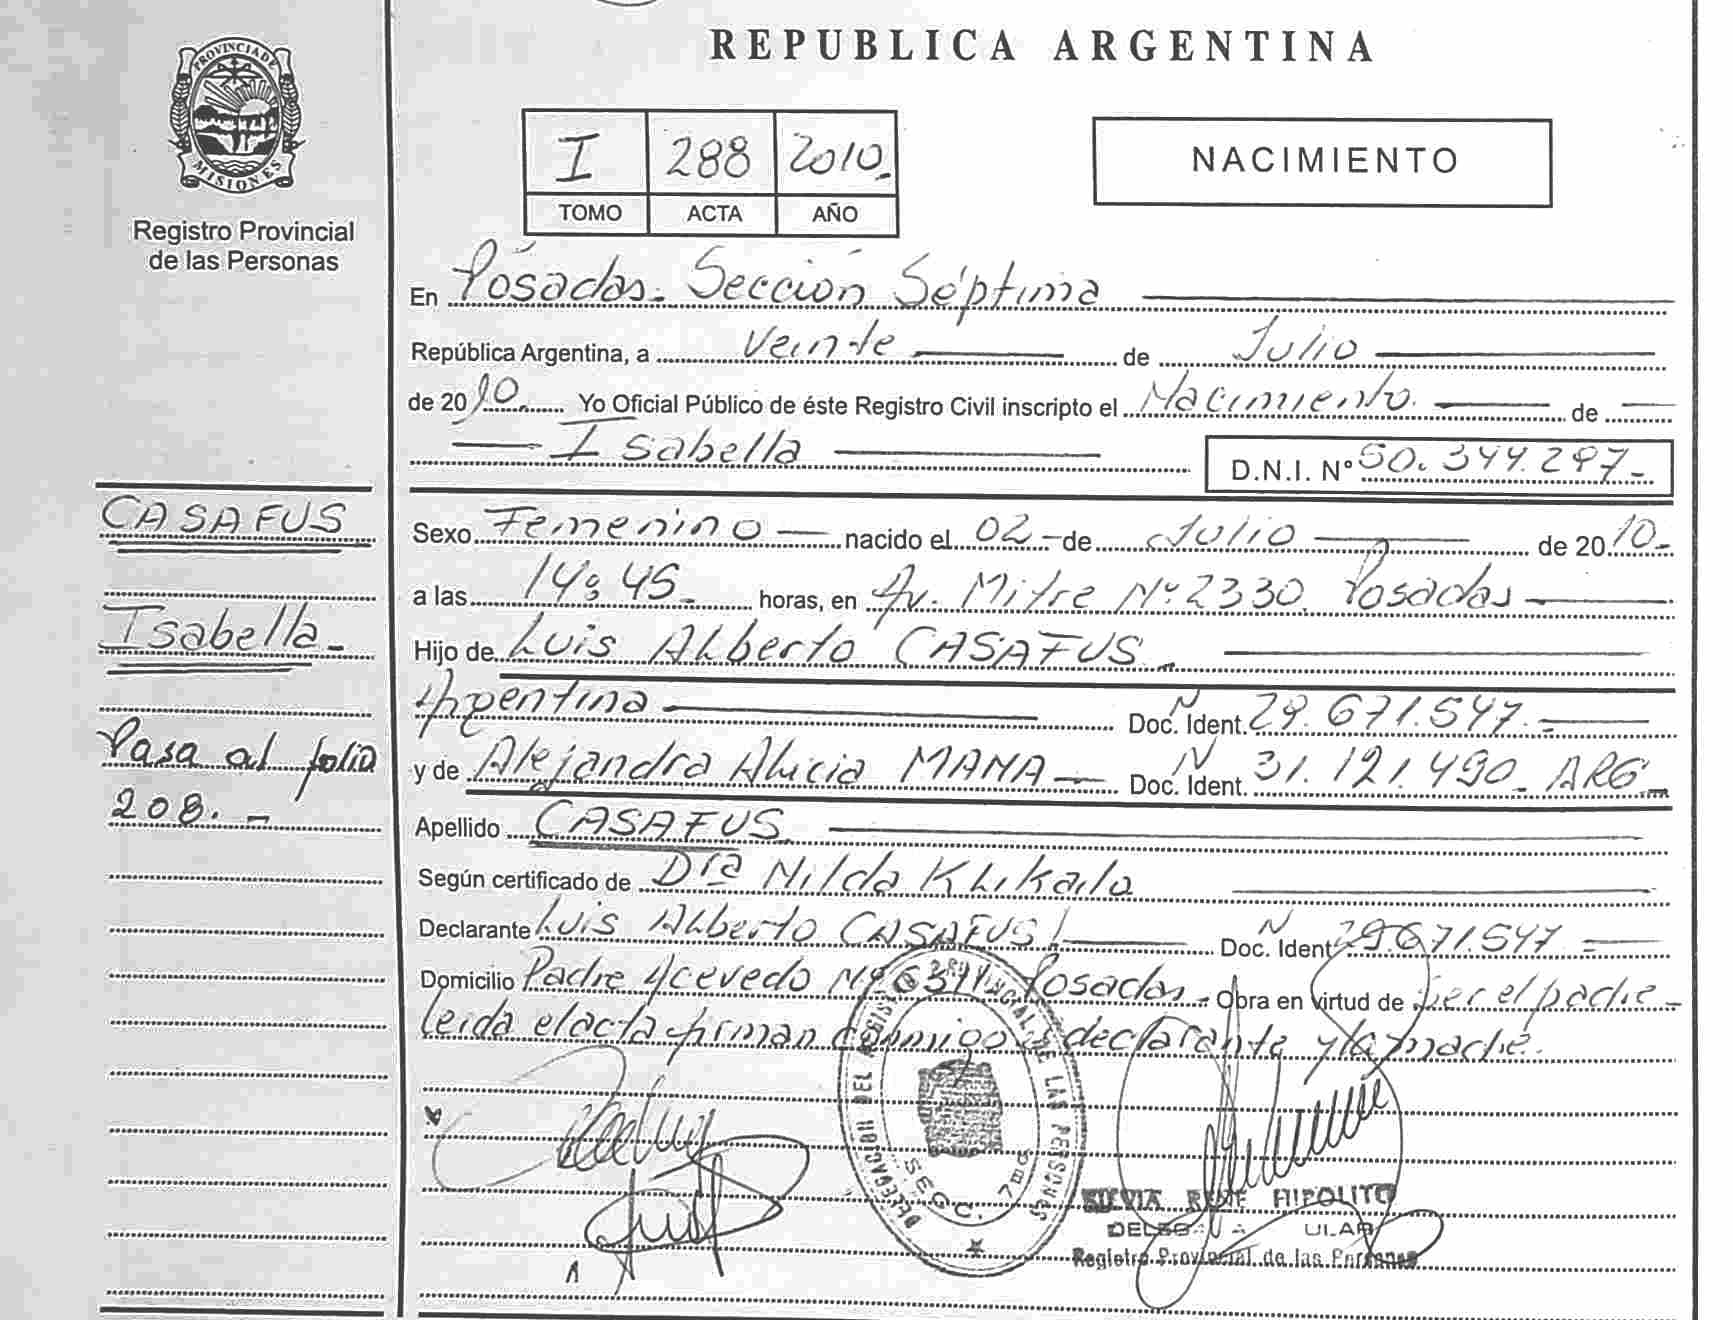 REPUBLICA ARGENTINA
PROVINCIA DE MISIONES
Registro Provincial
de las Personas
I 288 2010.-
TOMO ACTA AÑO
NACIMIENTO
En Posadas. Sección Séptima
República Argentina, a Veinte de Julio
de 2010. Yo Oficial Público de éste Registro Civil inscripto el Nacimiento. de
Isabella D.N.I. Nº 50.344.297.-
CASAFUS
Isabella.-
Pasa al folio
208.-
Sexo Femenino nacido el 02 - de Julio de 2010.-
a las 14:45.- horas, en Av. Mitre Nº 2330. Posadas
Hijo de Luis Alberto CASAFUS.-
Argentina Doc. Ident. N 29.671.547.-
y de Alejandra Alicia MANA Doc. Ident. N 31.121.490.- ARG.
Apellido CASAFUS
Según certificado de Dra Nilda
Declarante Luis Alberto CASAFUS Doc. Ident N 29.671.547.-
Domicilio Padre Acevedo Nº Posadas.- Obra en virtud de ser el padre.-
Leida el acta firman conmigo declarante y la madre.
DELEGACION DEL REGISTRO PROVINCIAL DE LAS PERSONAS
SECC. 7ma
SILVIA RENE HIPOLITO
Registro Provincial de las Personas